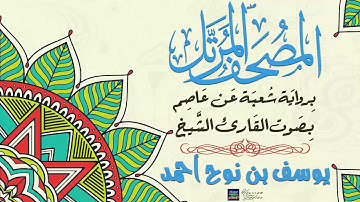 المصحف المرتل
برواية شعبة عن عاصم
بصوت القارئ الشيخ
يوسف بن نوح أحمد